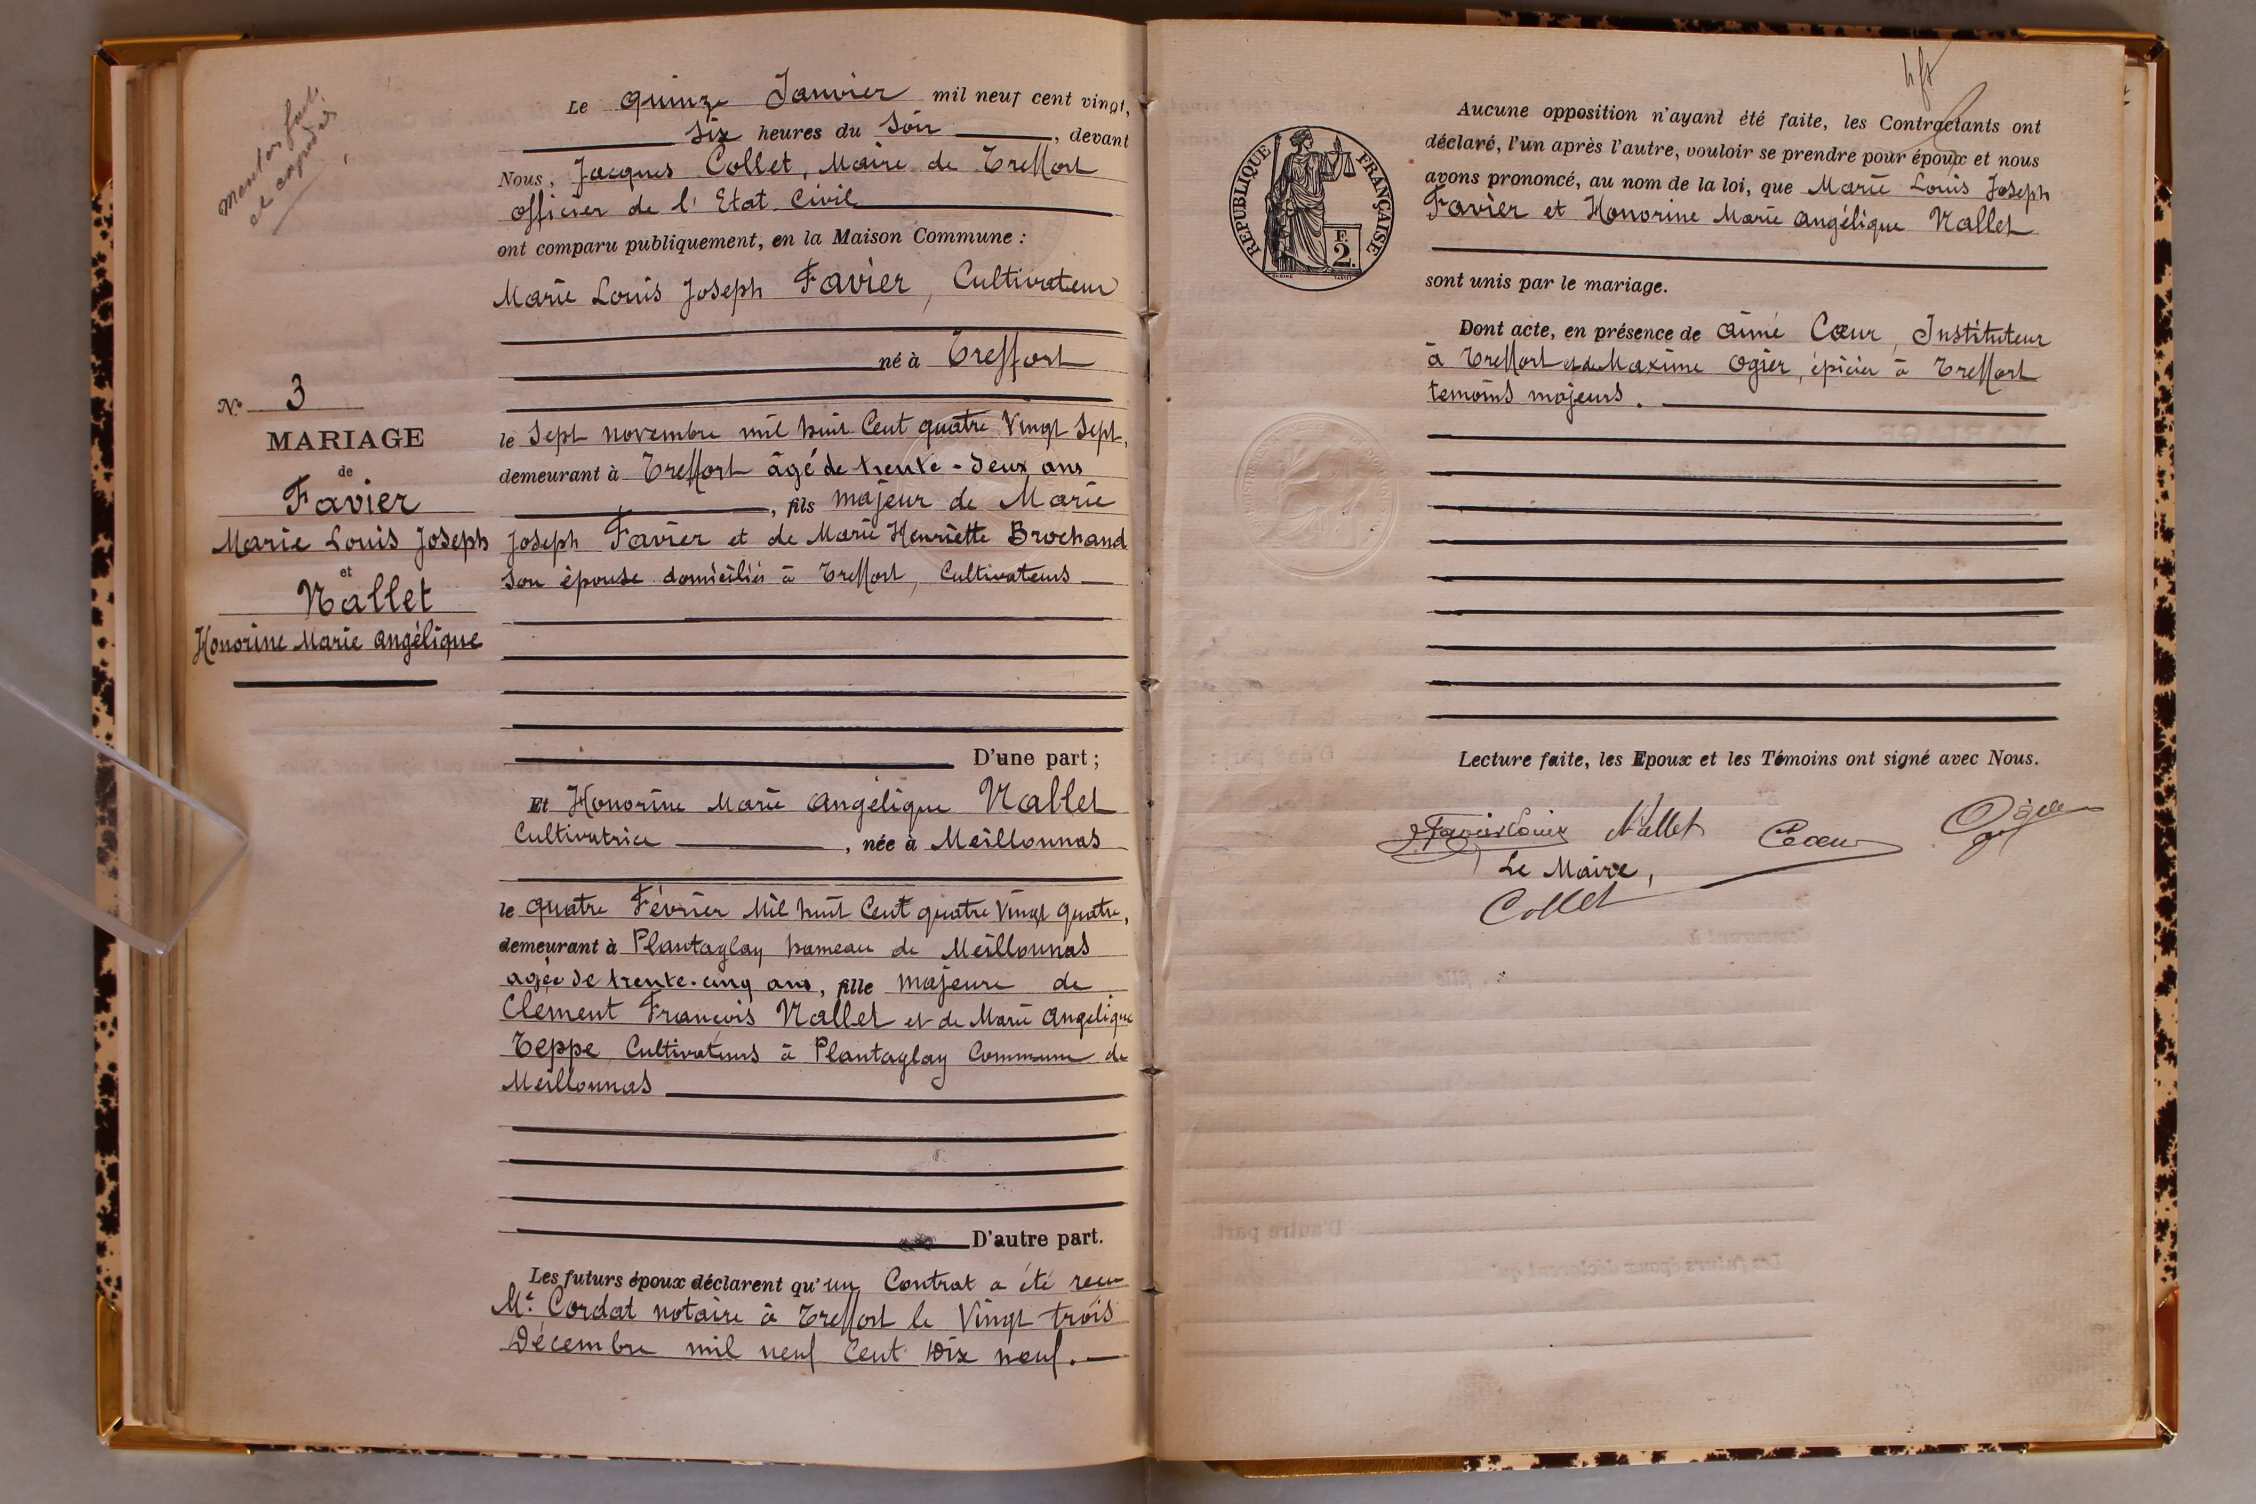 Mention faite
et expédiée
N° 3
MARIAGE
de
Favier
Marie Louis Joseph
et
Nallet
Honorine Marie Angélique
Le quinze Janvier mil neuf cent vingt,
six heures du soir, devant
Nous, Jacques Collet, Maire de Treffort
officier de l'Etat Civil
ont comparu publiquement, en la Maison Commune :
Marie Louis Joseph Favier, Cultivateur
né à Treffort
le sept novembre mil huit Cent quatre Vingt sept,
demeurant à Treffort âgé de trente-deux ans
, fils majeur de Marie
Joseph Favier et de Marie Henriette Brochand
son épouse domiciliés à Treffort, Cultivateurs
D'une part ;
Et Honorine Marie Angélique Nallet
Cultivatrice, née à Meillonnas
le quatre Février Mil huit Cent quatre Vingt quatre,
demeurant à Plantaglay hameau de Meillonnas
agée de trente-cinq ans, fille majeure de
Clement François Nallet et de Marie Angelique
Teppe Cultivateurs à Plantaglay Commune de
Meillonnas
D'autre part.
Les futurs époux déclarent qu'un Contrat a été reçu
Me. Cordat notaire à Treffort le Vingt trois
Décembre mil neuf Cent Dix neuf.
REPUBLIQUE FRANÇAISE
F.
2.
Aucune opposition n'ayant été faite, les Contractants ont
déclaré, l'un après l'autre, vouloir se prendre pour époux et nous
avons prononcé, au nom de la loi, que Marie Louis Joseph
Favier et Honorine Marie Angélique Nallet
sont unis par le mariage.
Dont acte, en présence de Aimé Cœur, Instituteur
à Treffort et de Maxime Ogier, épicier à Treffort
temoins majeurs.
Lecture faite, les Epoux et les Témoins ont signé avec Nous.
Favier Louis Nallet Cœur Ogier
Le Maire,
Collet